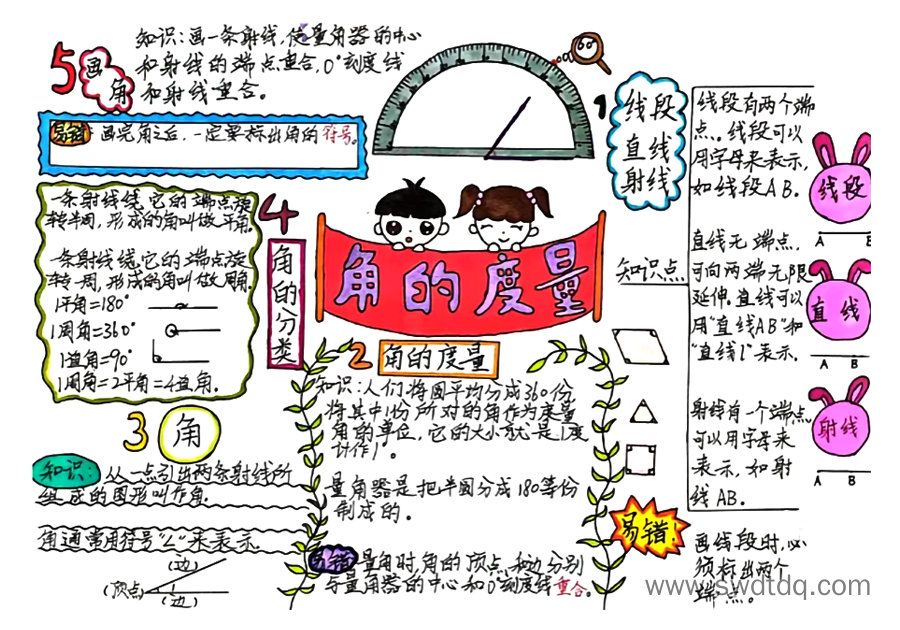 角的度量
1
线段
直线
射线
知识点
线段有两个端
点。线段可以
用字母来表示,
如线段AB。
线段
A B
直线无端点,
可向两端无限
延伸。直线可以
用"直线AB"和
"直线l"表示。
直线
A B
射线有一个端点
可以用字母来
表示,如射
线AB。
射线
A B
易错
画线段时,必
须标出两个
端点。
2 角的度量
知识:人们将圆平均分成360份
将其中1份所对的角作为度量
角的单位,它的大小就是1度
计作1°。
量角器是把半圆分成180等份
制成的。
易错 量角时,角的顶点和边分别
与量角器的中心和0°刻度线重合。
3 角
知识: 从一点引出两条射线所
组成的图形叫作角.
角通常用符号"∠"来表示
(边)
(顶点
1
(边)
4
角的分类
一条射线绕它的端点旋
转半周,形成的角叫做平角.
一条射线绕它的端点旋
转一周,形成的角叫做周角.
1平角=180°
1周角=360°
1直角=90°
1周角=2平角=4直角.
5 画角
知识:画一条射线,使量角器的中心
和射线的端点重合,0°刻度线
和射线重合。
易错: 画完角之后,一定要标出角的符号。
60°
www.swdtdq.com